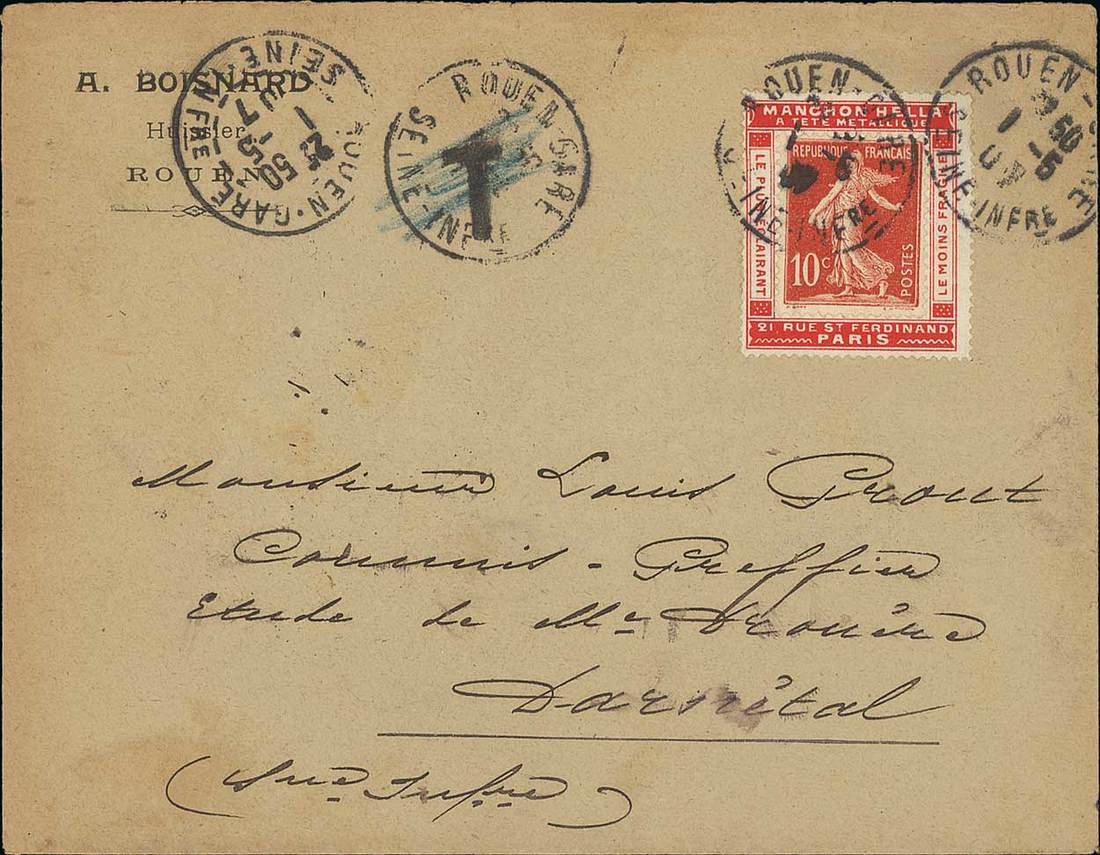 A. BOISNARD
Huissier
ROUEN
ROUEN-GARE
SEINE-INFRE
ROUEN-GARE
SEINE-INFRE
T
ROUEN-GARE
SEINE-INFRE
ROUEN
SEINE-INFRE
MANCHON HELLA
A TÊTE METALLIQUE
LE PLUS ÉCLAIRANT
REPUBLIQUE FRANÇAISE
10c
POSTES
LE MOINS FRAGILE
21, RUE ST FERDINAND
PARIS
Monsieur Louis Prout
Commis-Greffier
Etude de Me Drouère
Darnétal
(Sne Infre)